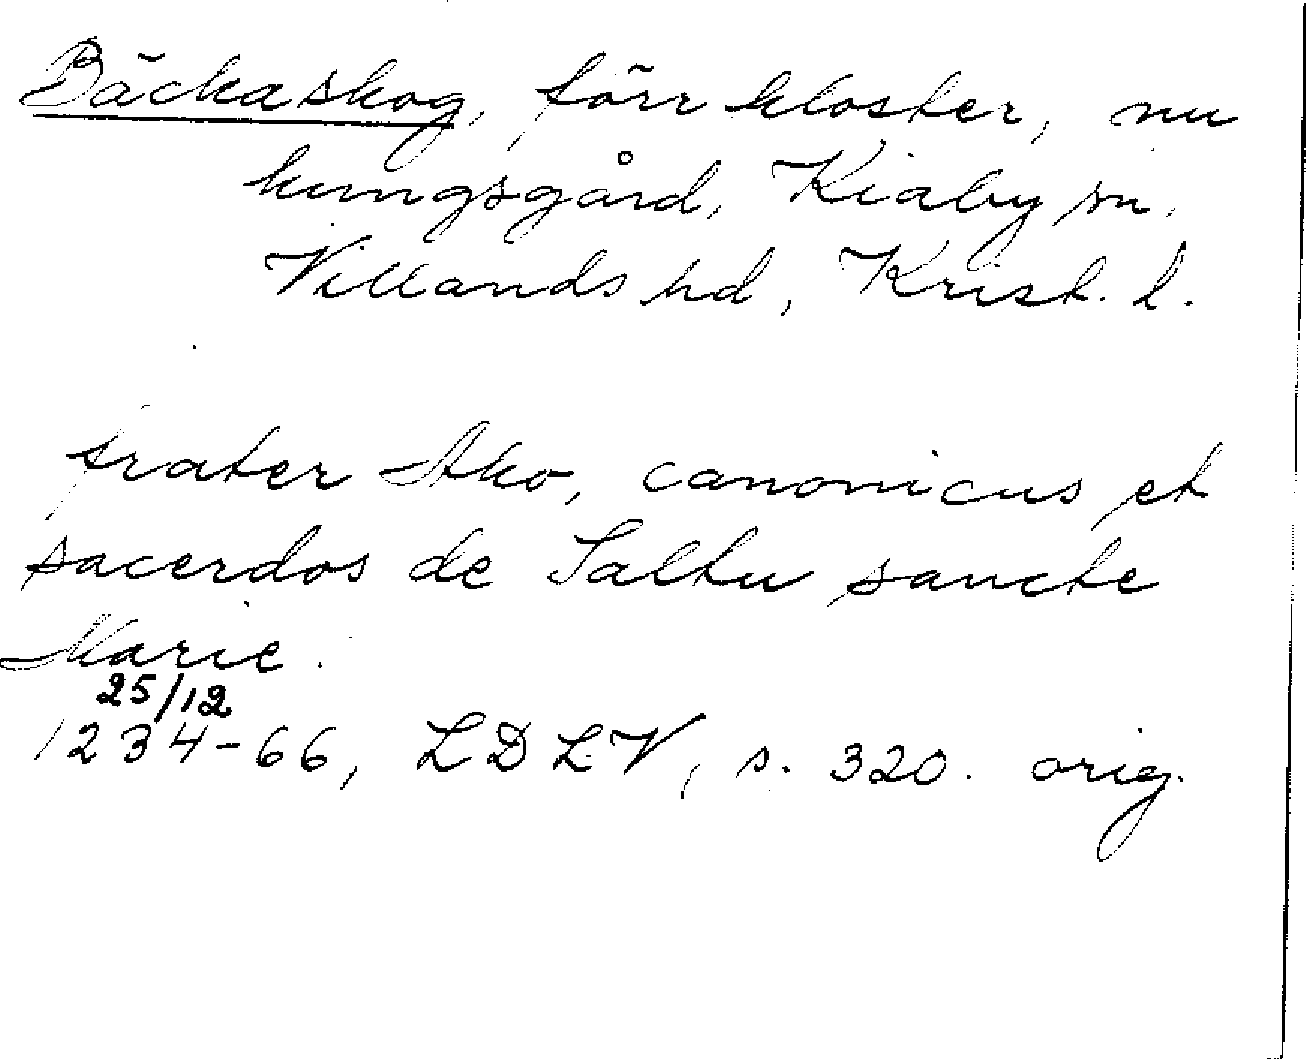 Bäckaskog, förr kloster, nu
kungsgård, Kiaby sn,
Villands hd, Krist. l.
frater Ako, canonicus et
sacerdos de Saltu sancte
Marie.
25/12
1234-66, LDLV, s. 320. orig.